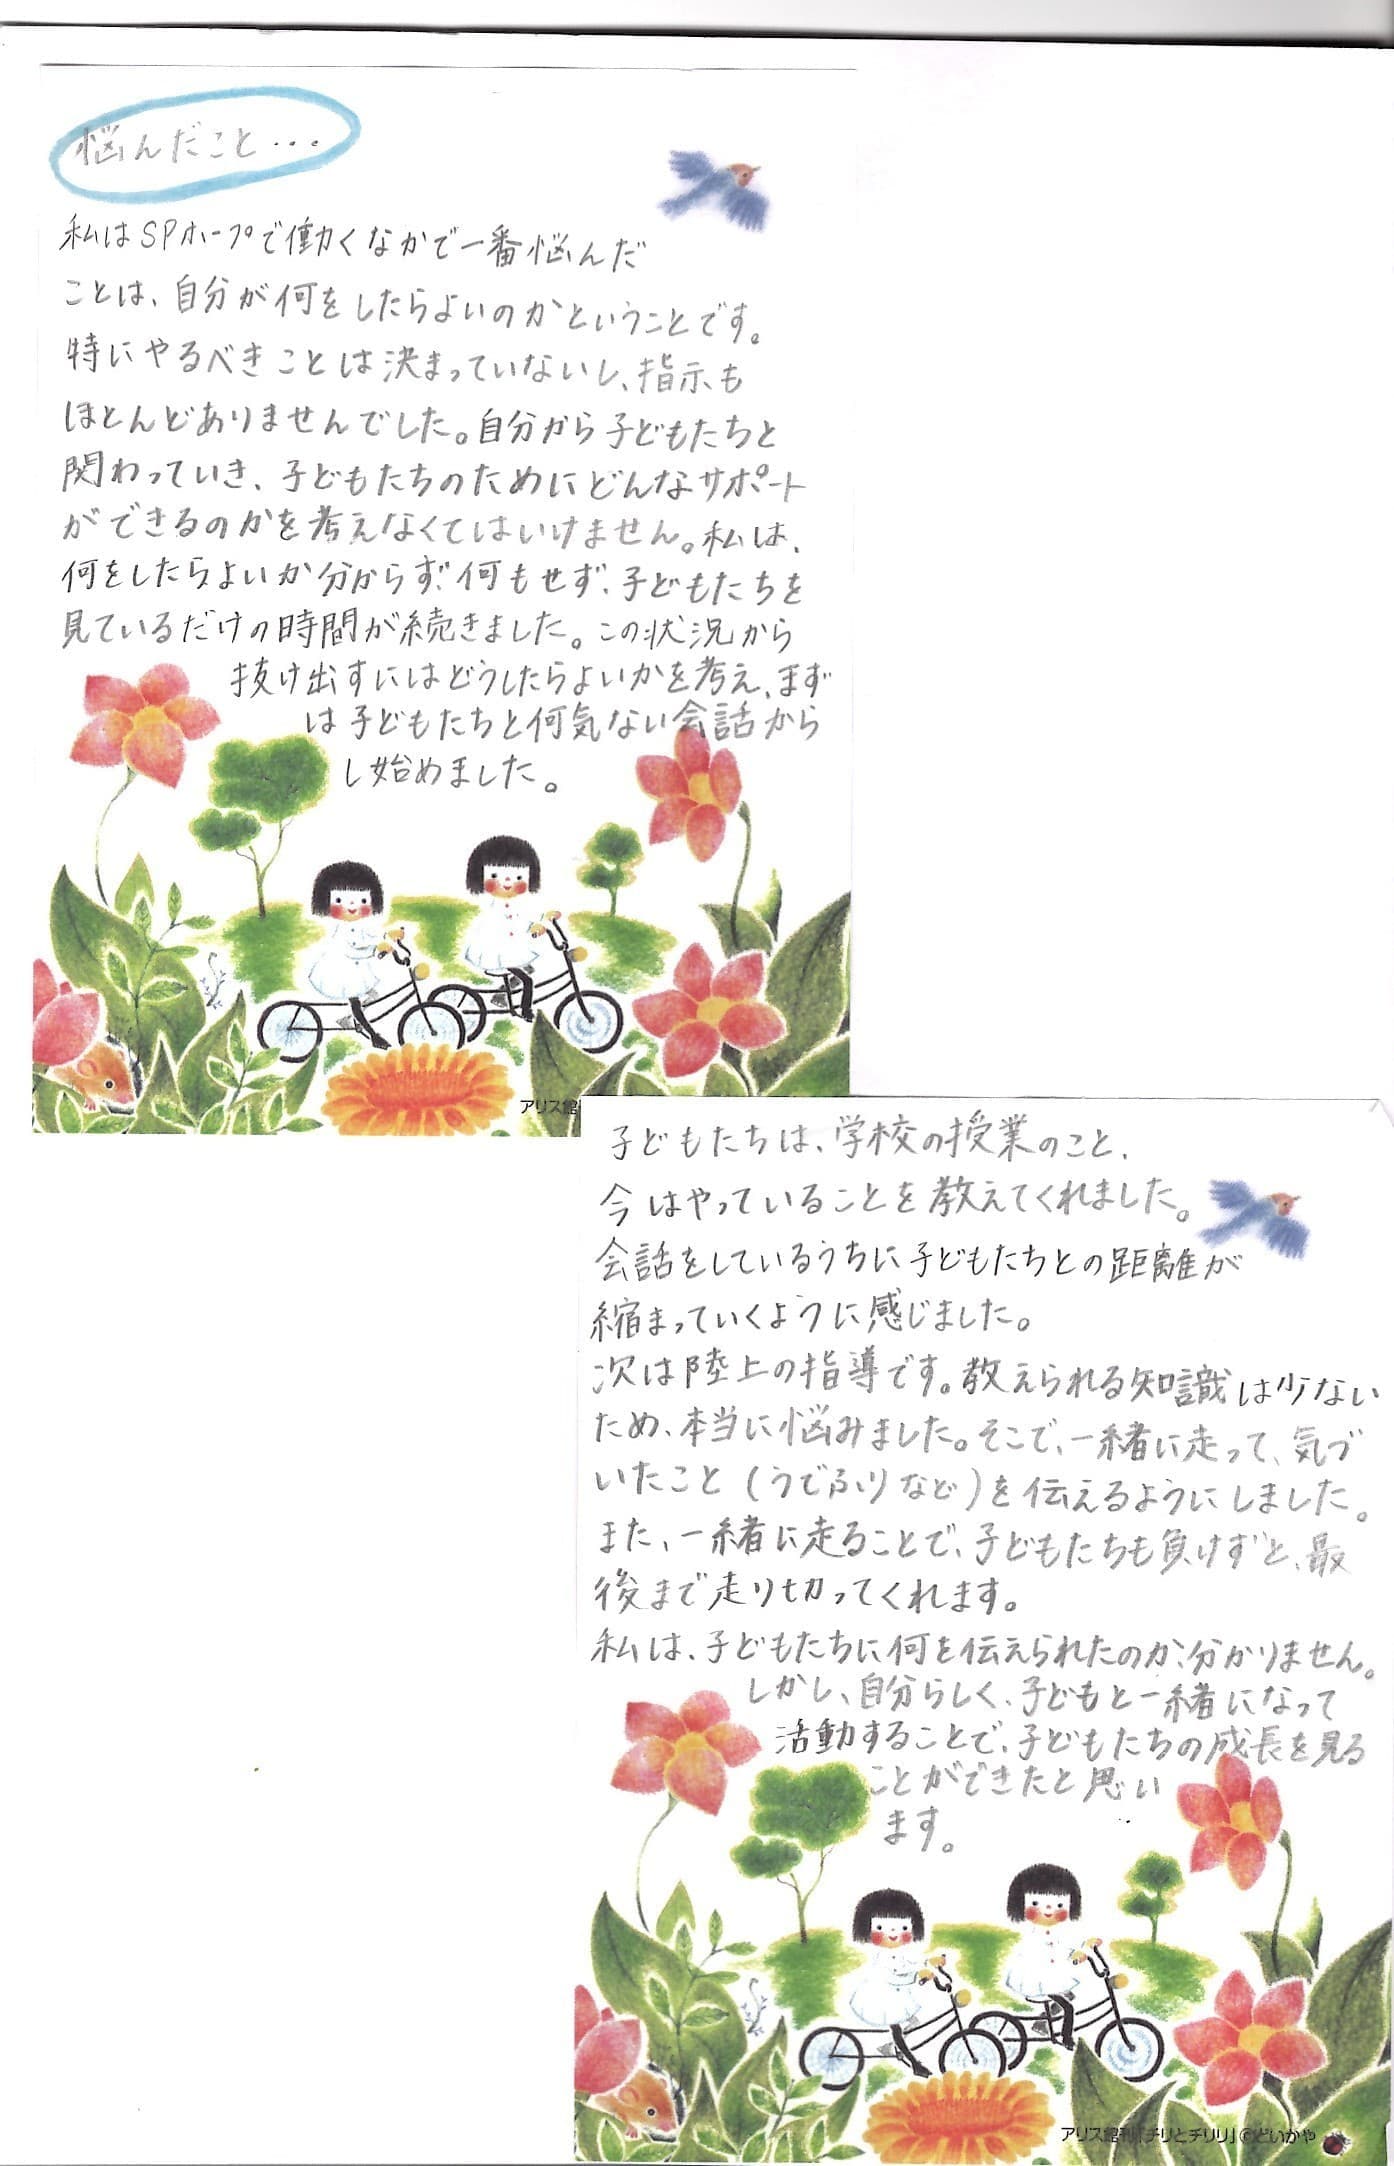 悩んだこと...
私はSPホープで働くなかで一番悩んだ
ことは、自分が何をしたらよいのかということです。
特にやるべきことは決まっていないし、指示も
ほとんどありませんでした。自分から子どもたちと
関わっていき、子どもたちのためにどんなサポート
ができるのかを考えなくてはいけません。私は、
何をしたらよいか分からず、何もせず、子どもたちを
見ているだけの時間が続きました。この状況から
抜け出すにはどうしたらよいかを考え、まず
は子どもたちと何気ない会話から
し始めました。
アリス館
子どもたちは、学校の授業のこと、
今はやっていることを教えてくれました。
会話をしているうちに子どもたちとの距離が
縮まっていくように感じました。
次は陸上の指導です。教えられる知識は少ない
ため、本当に悩みました。そこで、一緒に走って、気づ
いたこと(うでふりなど)を伝えるようにしました。
また、一緒に走ることで、子どもたちも負けずと、最
後まで走り切ってくれます。
私は、子どもたちに何を伝えられたのか、分かりません。
しかし、自分らしく、子どもと一緒になって
活動することで、子どもたちの成長を見る
ことができたと思い
ます。
アリス館刊「チリとチリリ」©どいかや